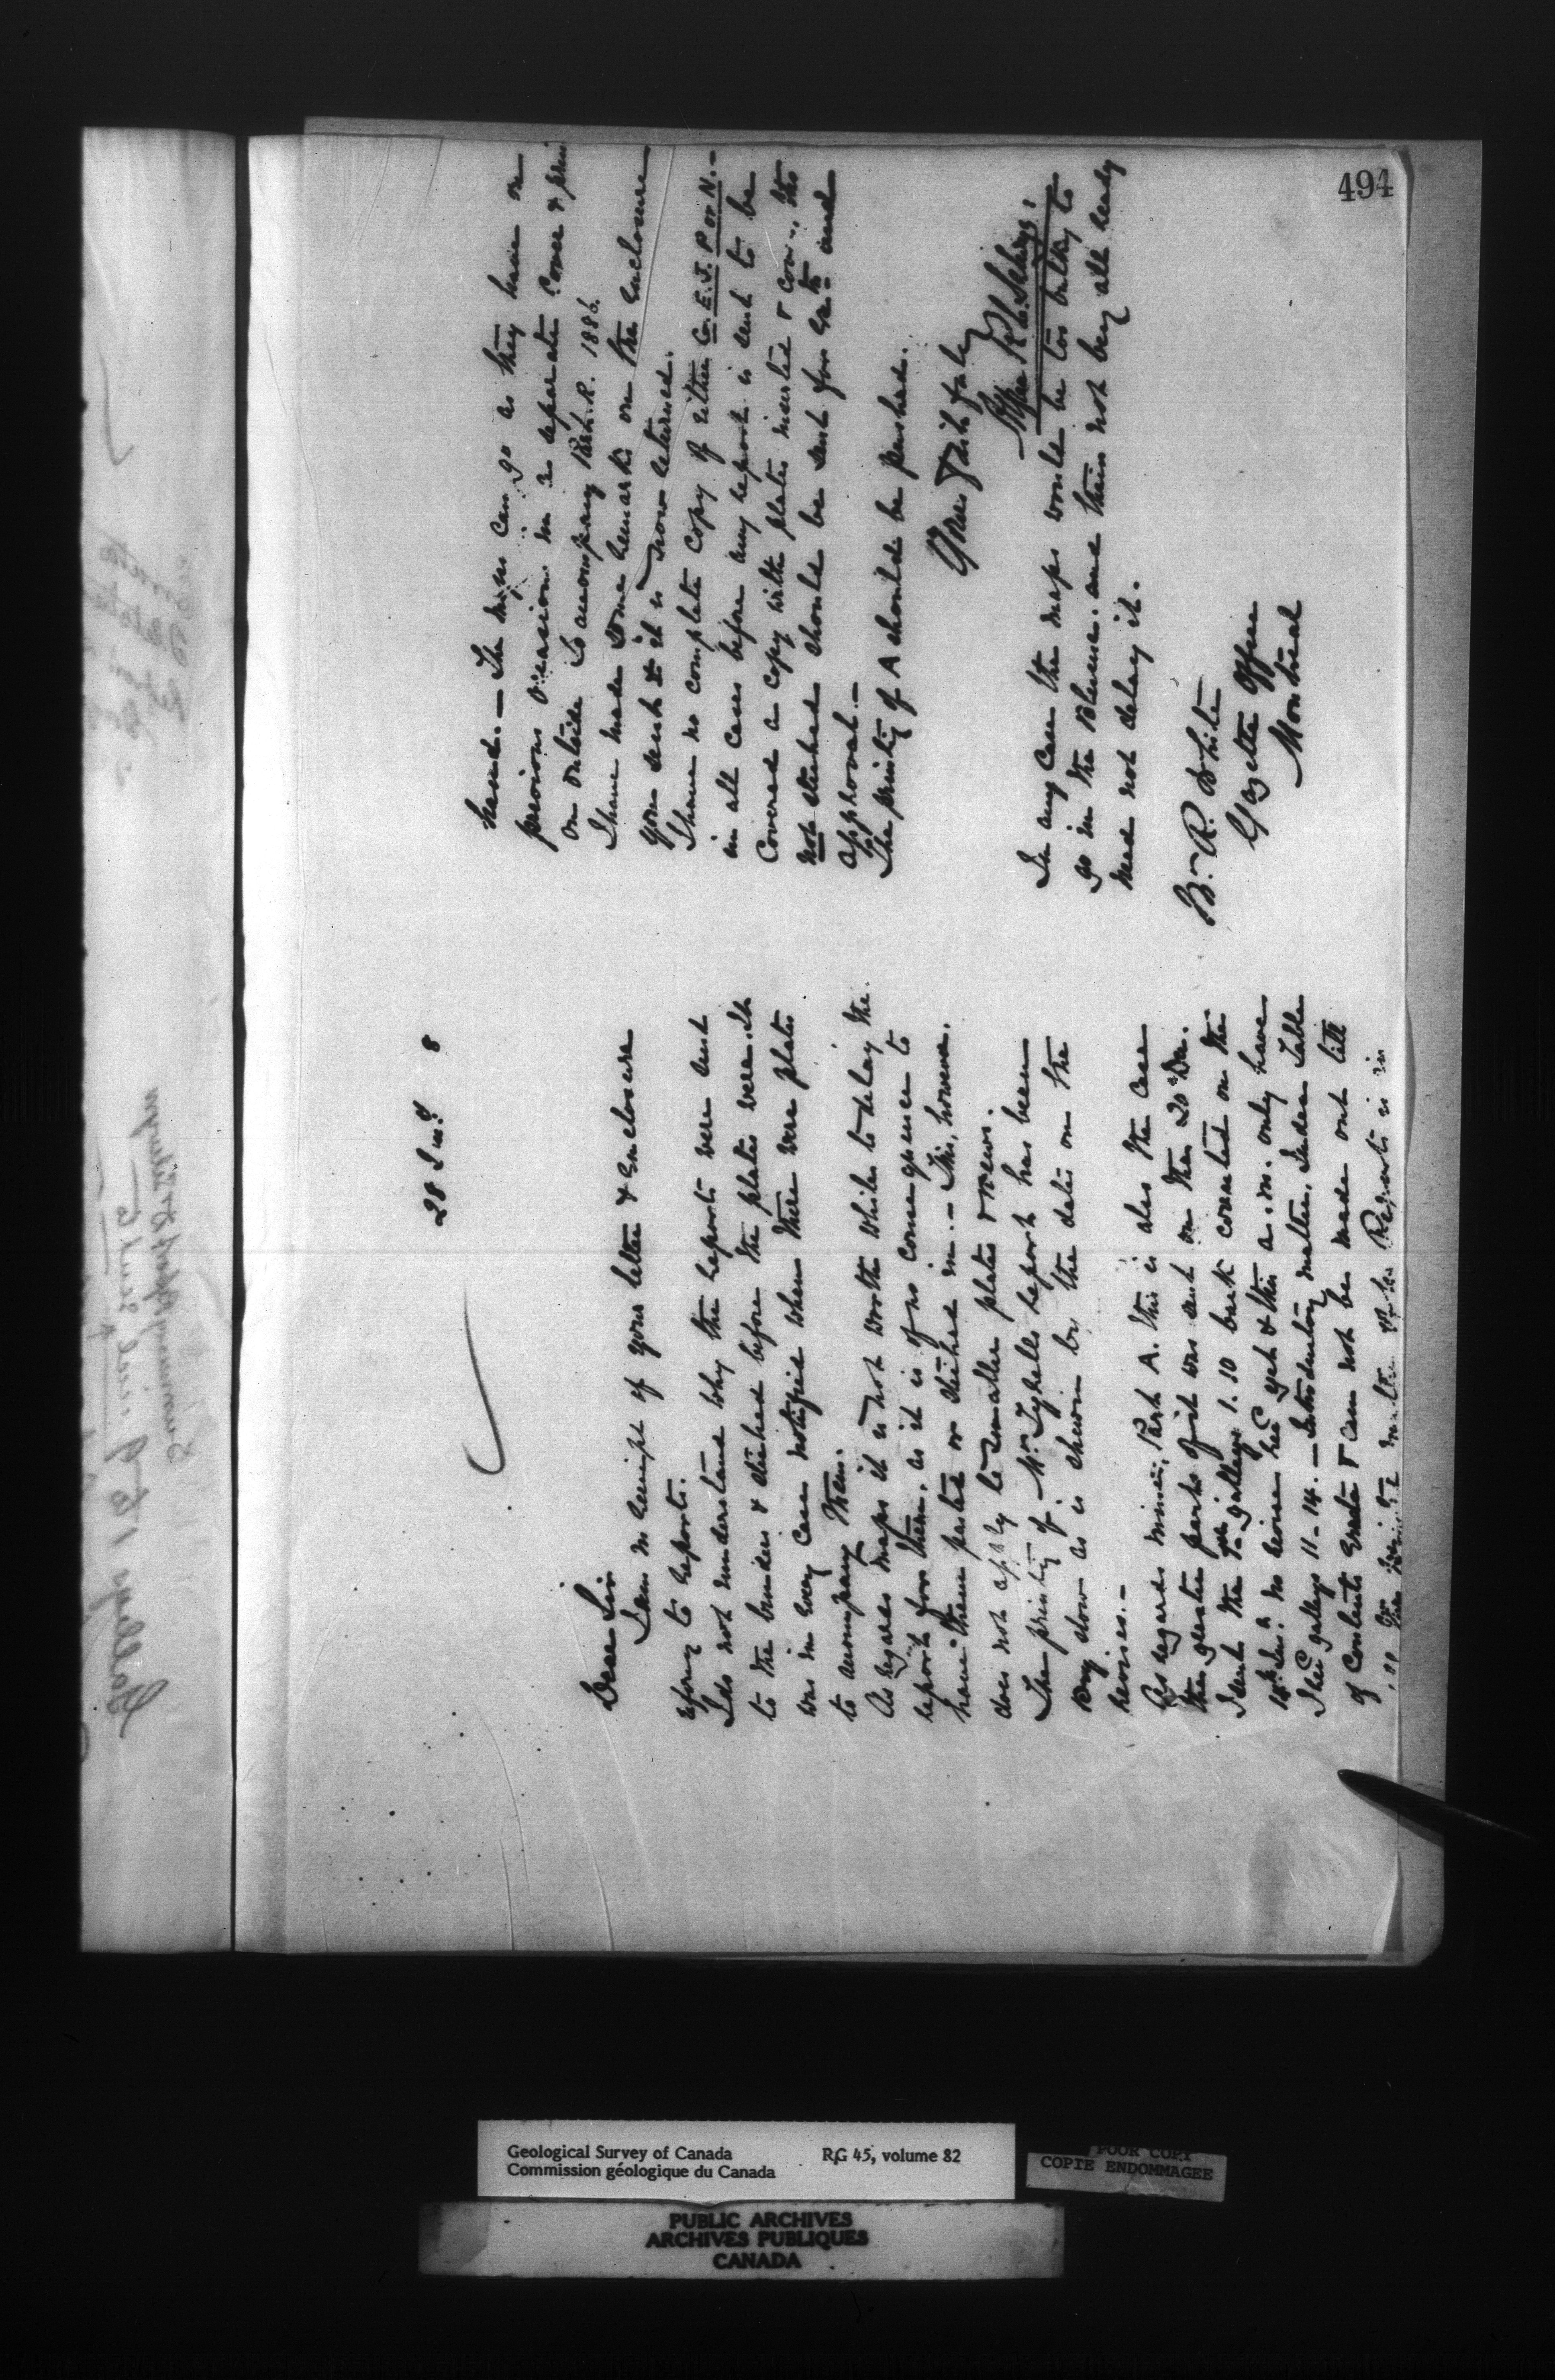 494
28 Jud 8
Dear Sir
I am in receipt of your letter & enclosure
refering to reports.
I do not understand why the reports were sent
to the binders & stiched before the plates were. It
was in every case notified when there were plates
to accompany them.
As regards maps it is not worth while to delay the
report for them, as it is of no consequence to
have them pasted or stiched in. — This, however,
does not apply to smaller plates & views.
The printing of Mr Tyrells report has been
very slow as is shewn by the dates on the
revises. —
As regards mine, Part A. this is also the case
the greater parts of it was sent on the 20th Dec.
I sent the galleys 1.10 back corrected on the
14th no revise recd yet & this a.m. only have
I recd galleys 11–14. — Introductory matter, Index Table
of Contents Errata & can not be made out till
Report is in
hand. — The maps can go as they have on
previous occasions in a separate cover & print
on outside To accompany Part. R. 1886.
I have made some remarks on the enclosure
you sent & it is now returned.
I have no complete copy of either G. E. J. P or N. —
in all cases before any report is sent to be
covered a copy with plates inserted & cov., tho
not stiched should be sent for and
approval —
The printing of A should be pushed.
Yours faithfully
Alfred R. C. Selwyn.
In any case the maps would be too bulky to
go in the Blume. and their not being all ready
need not delay it.
R. White
Gazette Office
Montreal
Geological Survey of Canada RG 45, volume 82
Commission géologique du Canada
POOR COPY
COPIE ENDOMMAGEE
PUBLIC ARCHIVES
ARCHIVES PUBLIQUES
CANADA